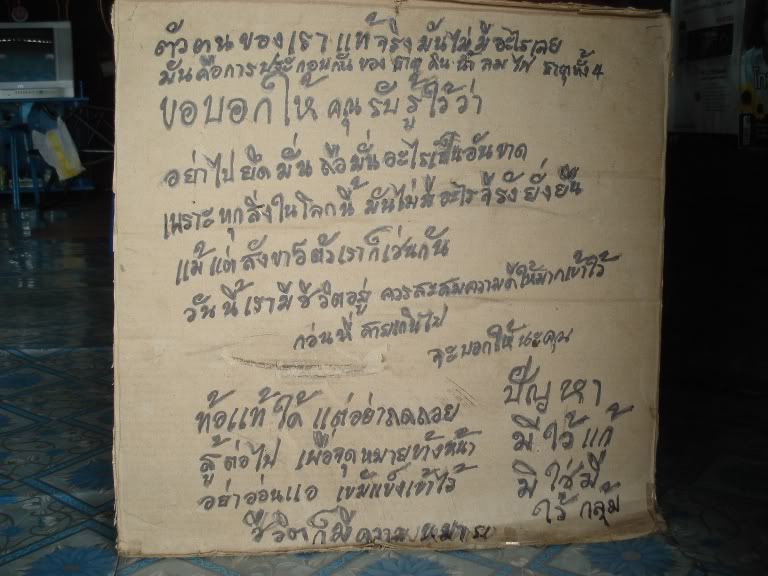 ตัวตนของเราแท้จริงมันไม่มีอะไรเลย
มันคือการประกอบกันของ ธาตุ ดิน น้ำ ลม ไฟ ธาตุทั้ง 4
ขอบอกให้ คุณ รับ รู้ ไว้ว่า
อย่าไป ยึด มั่น ถือ มั่น อะไรเป็นอันขาด
เพราะ ทุก สิ่ง ใน โลก นี้ มันไม่มีอะไรจีรัง ยั่ง ยืน
แม้ แต่ สังขาร ตัว เรา ก็ เช่น กัน
วัน นี้ เรา มี ชีวิต อยู่ ควร สะสม ความ ดี ให้ มาก เข้า ไว้
ก่อน ที่ สาย เกิน ไป
จะ บอก ให้ นะ คุณ
ท้อแท้ ได้ แต่ อย่า ถดถอย
สู้ ต่อ ไป เพื่อ จุด หมาย ข้าง หน้า
อย่า อ่อนแอ เข้มแข็ง เข้า ไว้
ชีวิต ก็ มี ความ หมาย
ปัญ หา
มี ไว้ แก้
มิ ใช่ มี
ไว้ กลุ้ม